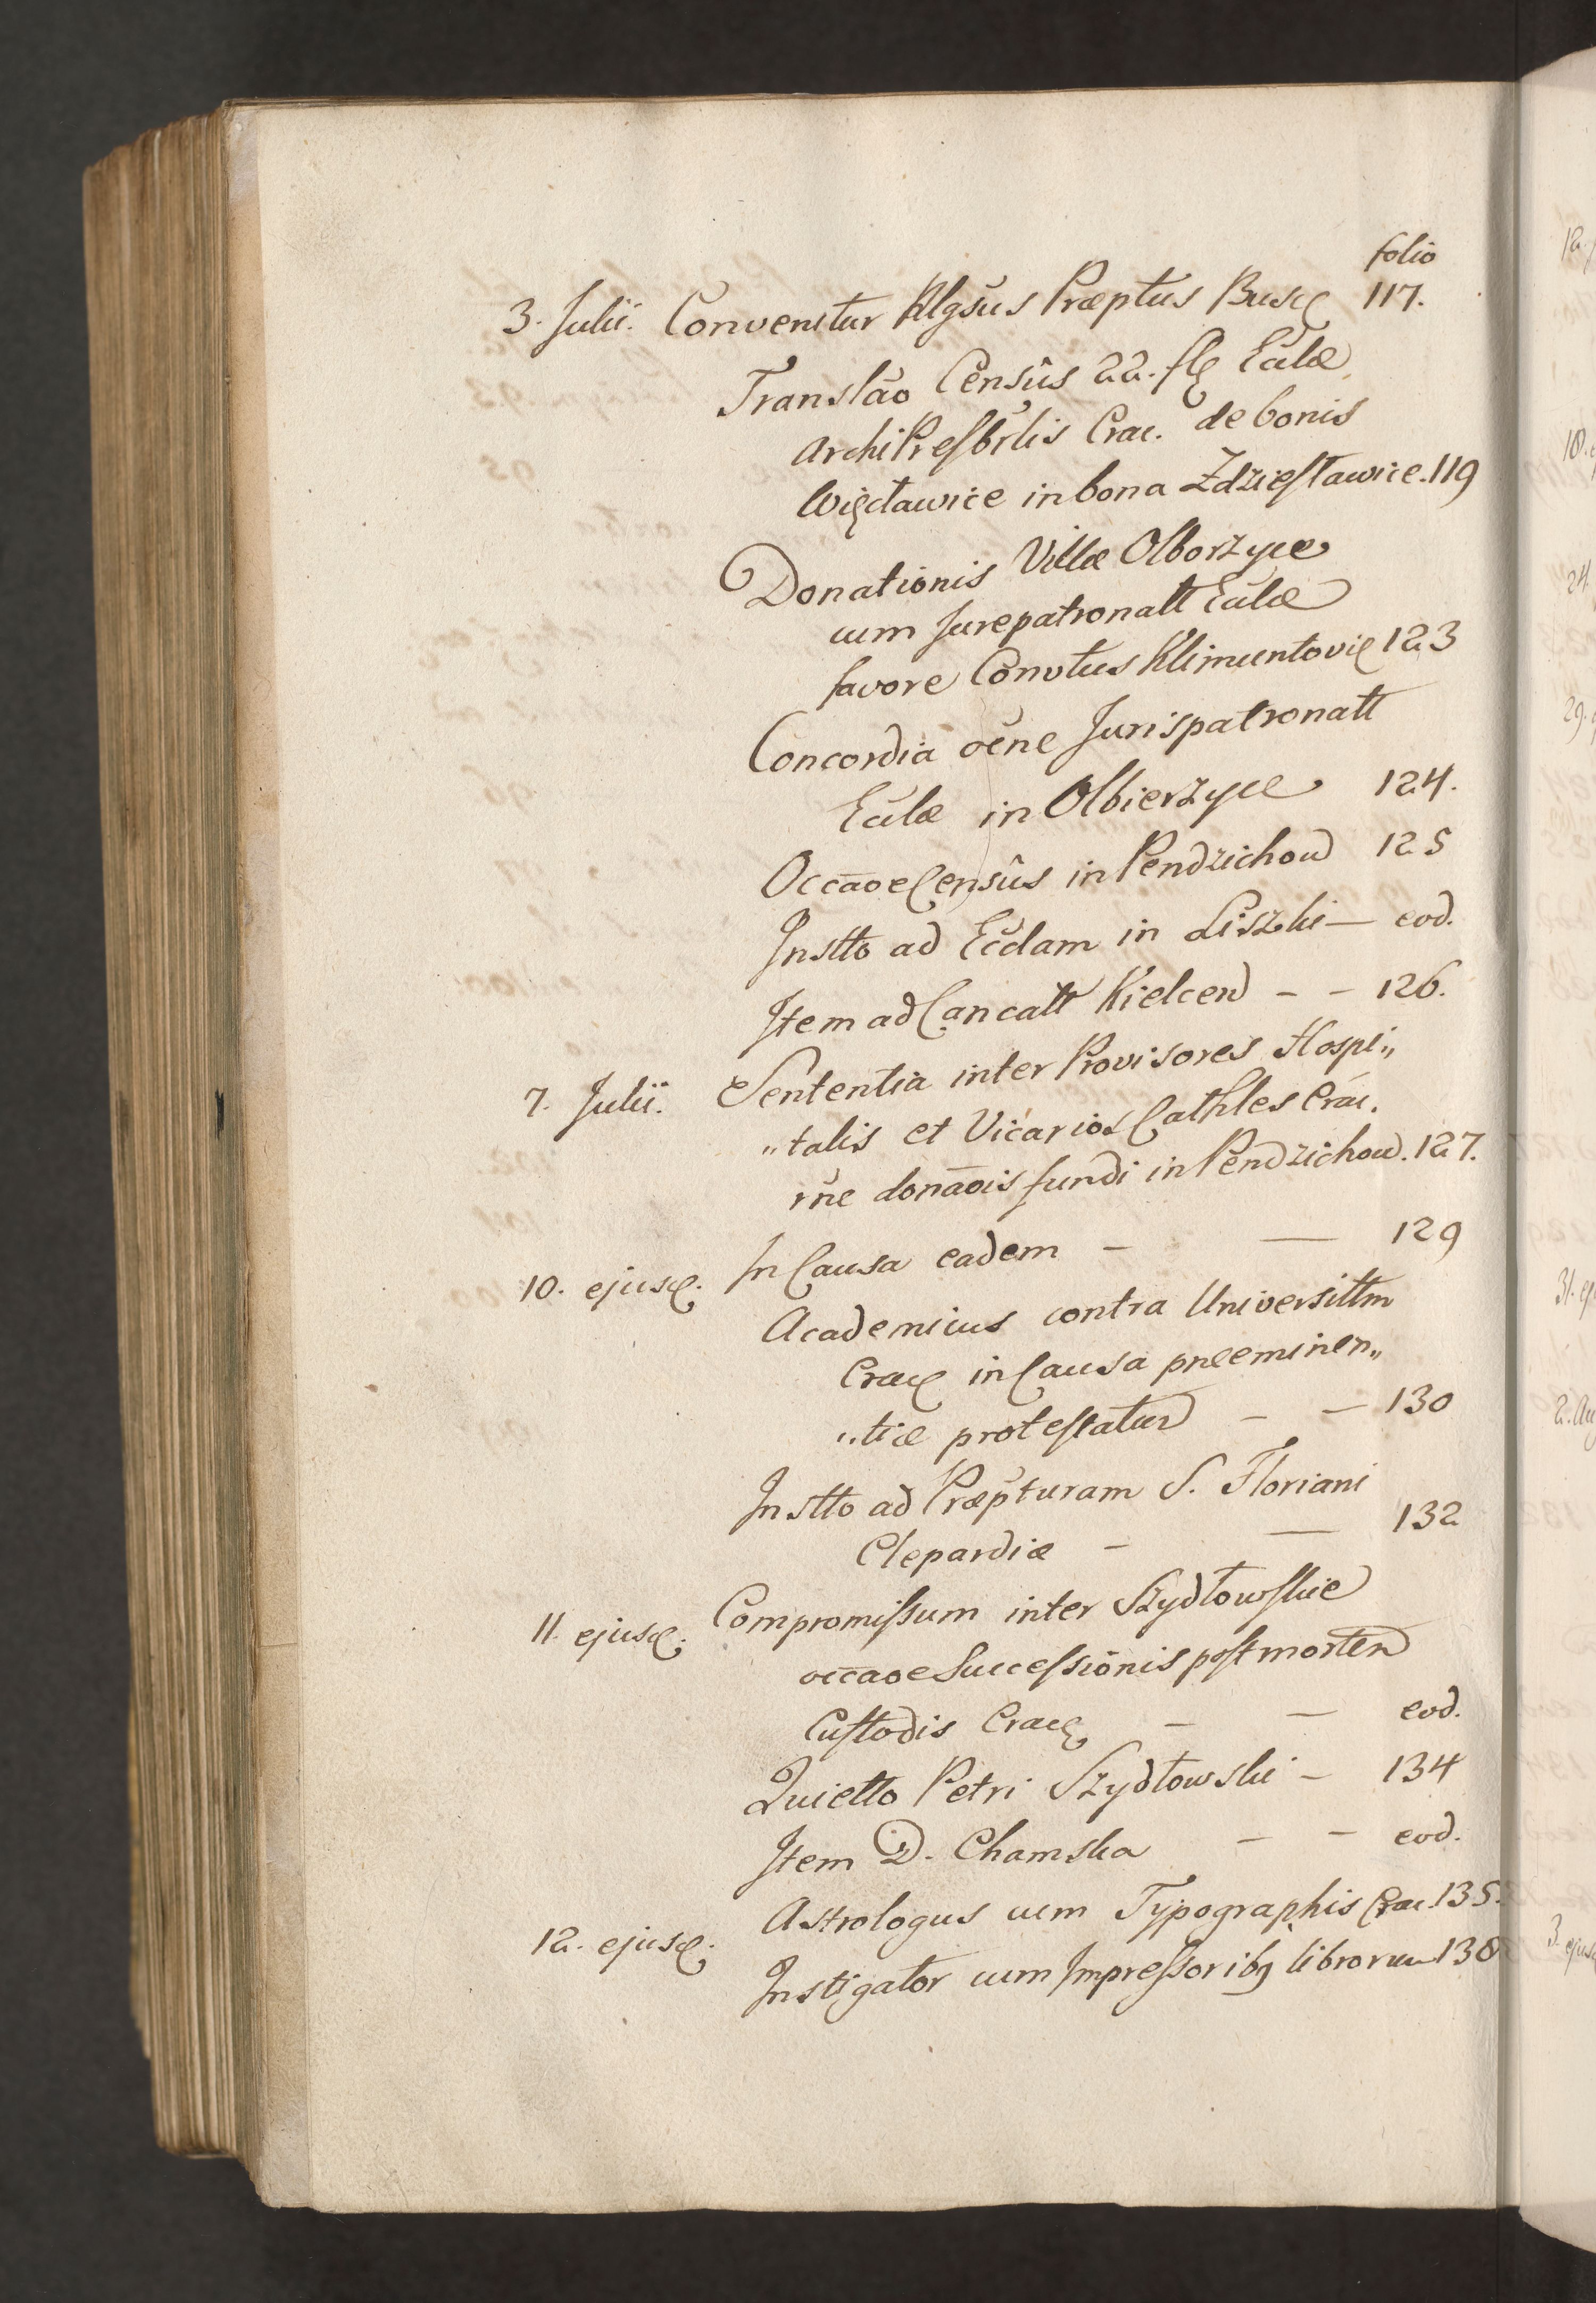 folio
3. Julii. Convenitur Rlgsus Præptus Busc 117.
Translao Censûs 22. fl Eccłæ
ArchiPresbrlis Crac. de bonis
Więcławice in bona Zdziesławice. 119
Donationis Villæ Olborzyce
cum Jurepatronatt Eccłæ
favore Convtus Klimuntovi 123
Concordia ōcne Jurispatronatt
Eccłæ in Olbierzyce 124.
Occāoe Censûs in Pendzichow 125
Instto ad Ecclam in Liszki — eod.
Item ad Cancatt Kielcen - - 126.
7. Julii. Sententia inter Provisores Hospi„
„talis et Vicarios Cathles Crac.
rñe donāois fundi in Pendzichow. 127.
10. ejusd. In Causa eadem - — 129
Academicus contra Universittm
Crac in Causa præeminen„
„tiæ protestatur - — 130
Instto ad Præpturam S. Floriani
Clepardiæ - — 132
11. ejusd. Compromissum inter Szydłowskie
occāoe Successionis post mortem
Custodis Crac - — eod.
Quietto Petri Szydłowski - 134
Item D. Chamska - - eod.
12. ejusd. Astrologus cum Typographis Crac. 135.
Instigator cum Impressoribq librorum 138